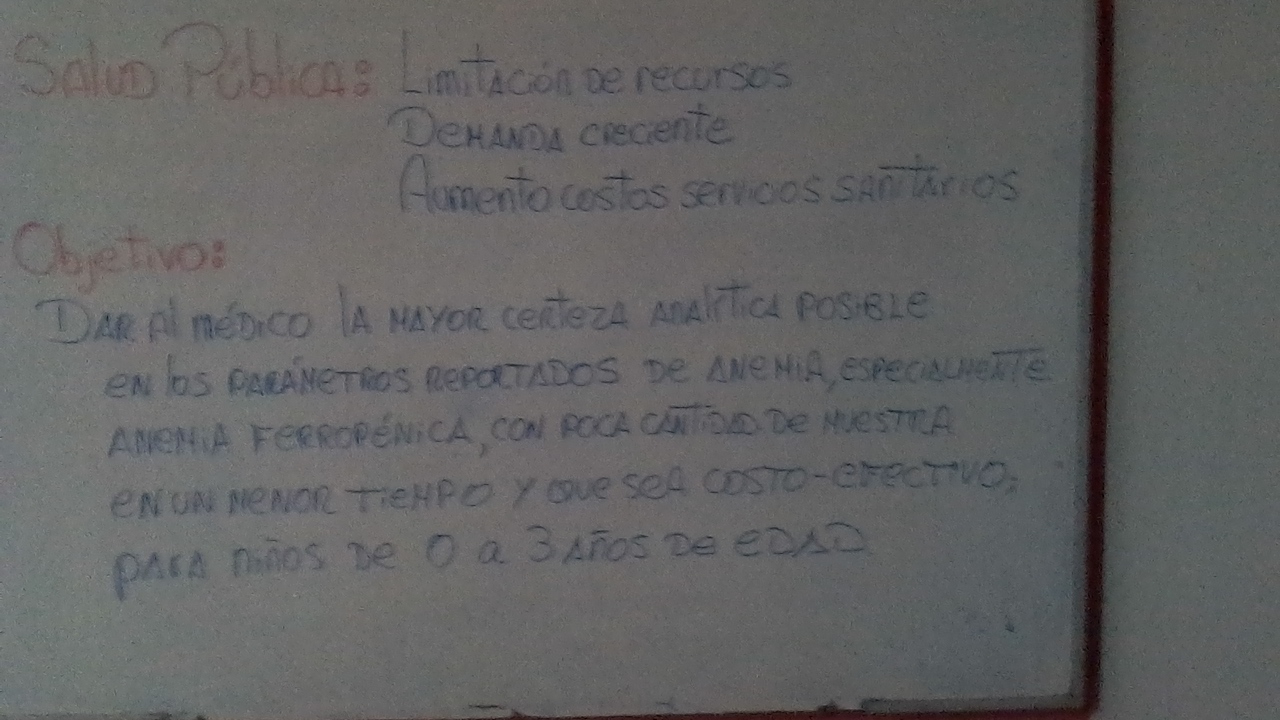 Salud Pública: Limitación de recursos
Demanda creciente
Aumento costos servicios sanitarios
Objetivo:
Dar al médico la mayor certeza analítica posible
en los parámetros reportados de anemia, especialmente
anemia ferropénica, con poca cantidad de muestra
en un menor tiempo y que sea costo-efectivo,
para niños de 0 a 3 años de edad